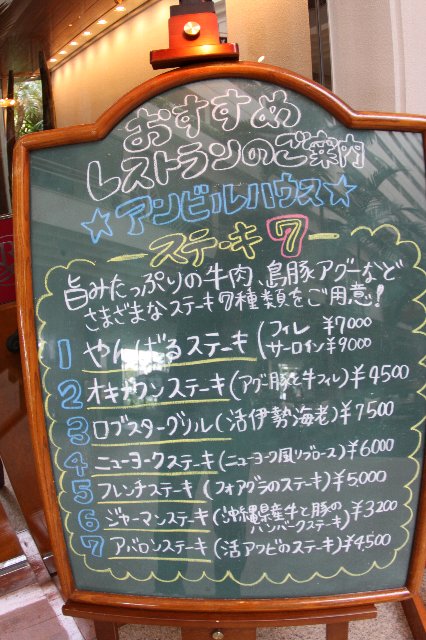 おすすめ
レストランのご案内
☆アンビルハウス☆
ステーキ7
旨みたっぷりの牛肉、島豚アグーなど
さまざまなステーキ7種類をご用意!
1 やんばるステーキ(フィレ ¥7000
サーロイン ¥9000
2 オキナワンステーキ(アグー豚と牛フィレ)¥4500
3 ロブスターグリル(活伊勢海老)¥7500
4 ニューヨークステーキ(ニューヨーク風リブロース)¥6000
5 フレンチステーキ(フォアグラのステーキ)¥5000
6 ジャーマンステーキ(沖縄県産牛と豚のハンバーグステーキ)¥3200
7 アバロンステーキ(活アワビのステーキ)¥4,500